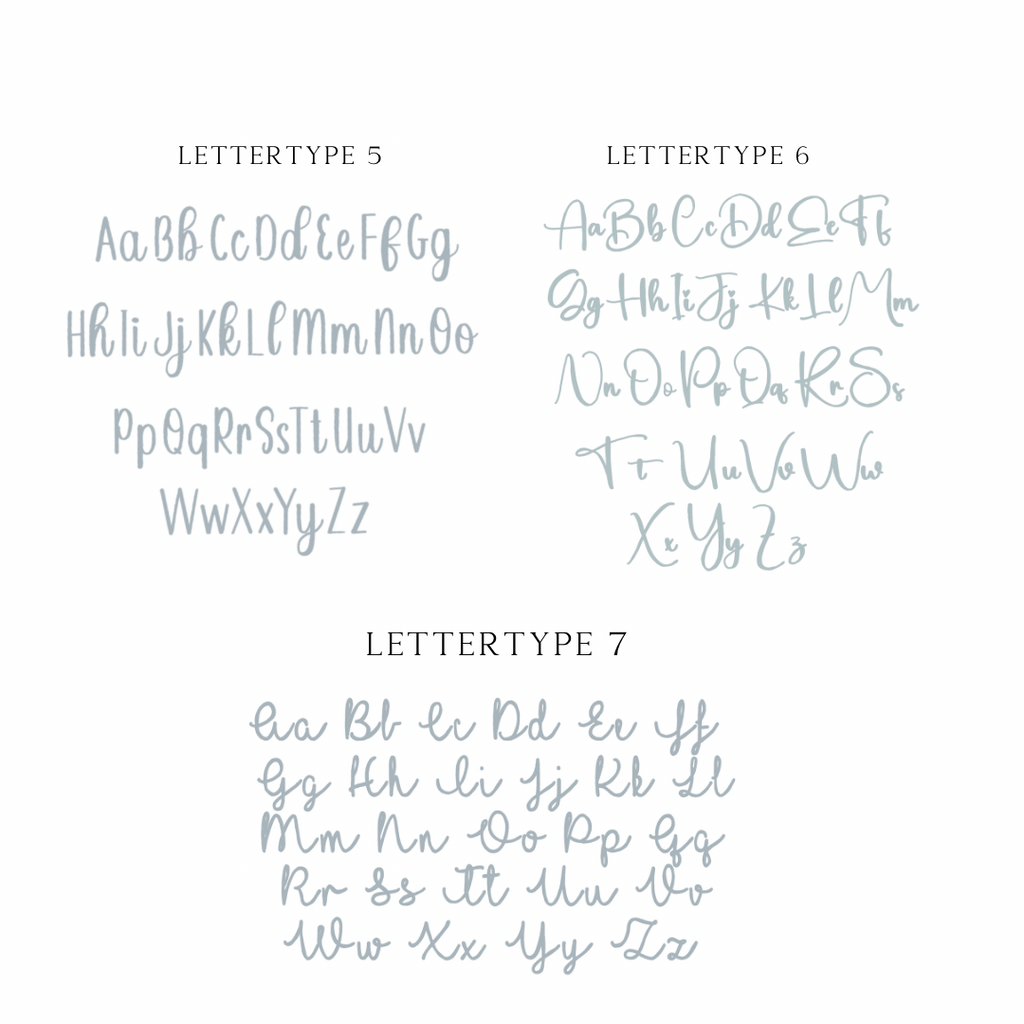 LETTERTYPE 5
AaBbCcDdEeFfGg
HhIiJjKkLlMmNnOo
PpQqRrSsTtUuVv
WwXxYyZz
LETTERTYPE 6
AaBbCcDdEeFf
GgHhIiJjKkLlMm
NnOoPpQqRrSs
TtUuVvWw
XxYyZz
LETTERTYPE 7
Aa Bb Cc Dd Ee Ff
Gg Hh Ii Jj Kk Ll
Mm Nn Oo Pp Qq
Rr Ss Tt Uu Vv
Ww Xx Yy Zz